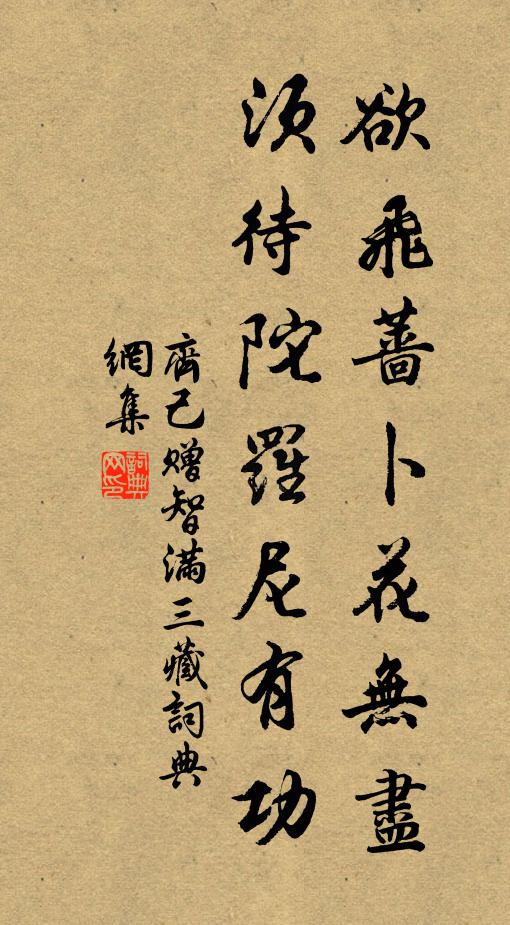 欲飛薔卜花無盡
須待陀羅尼有功
齊己贈智滿三藏詞典
網集
詞典网印